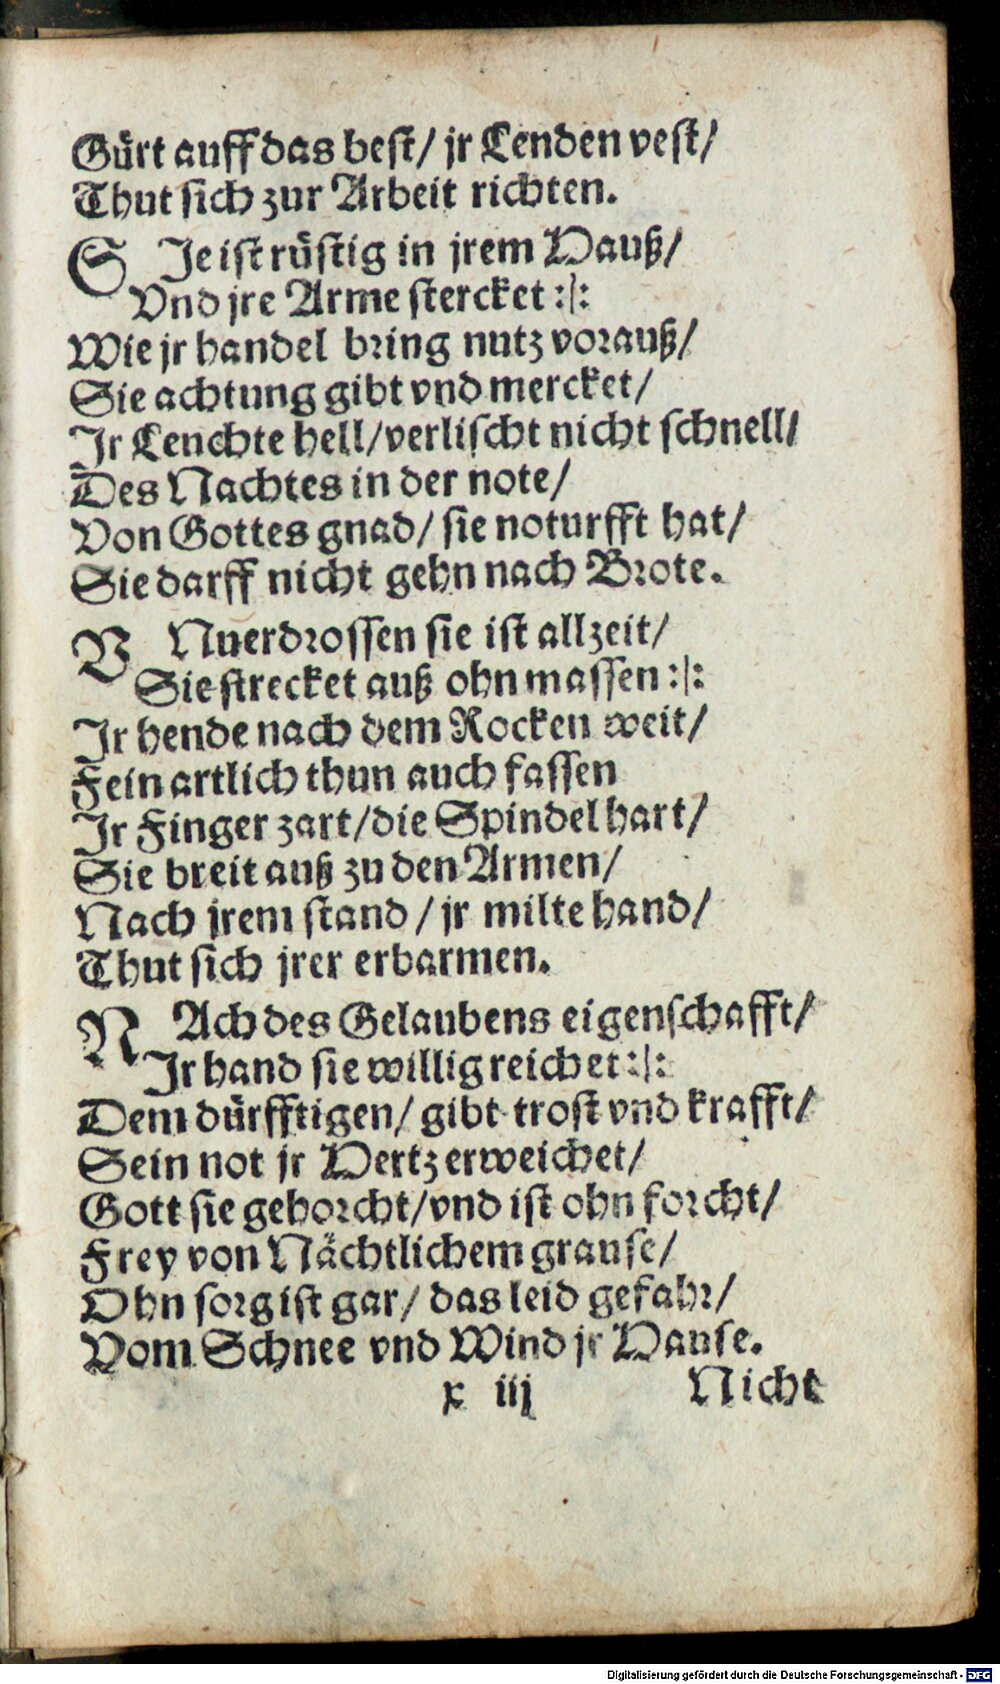 Gürt auff das best/ jr Lenden vest/
Thut sich zur Arbeit richten.
SJe ist rüstig in jrem Hauß/
Vnd jre Arme stercket :|:
Wie jr handel bring nutz vorauß/
Sie achtung gibt vnd mercket/
Jr Leuchte hell/verlischt nicht schnell/
Des Nachtes in der note/
Von Gottes gnad/ sie noturfft hat/
Sie darff nicht gehn nach Brote.
VNuerdrossen sie ist allzeit/
Sie strecket auß ohn massen :|:
Jr hende nach dem Rocken weit/
Fein artlich thun auch fassen
Jr Finger zart/die Spindel hart/
Sie breit auß zu den Armen/
Nach jrem stand/ jr milte hand/
Thut sich jrer erbarmen.
NAch des Gelaubens eigenschafft/
Jr hand sie willig reichet :|:
Dem dürfftigen/ gibt trost vnd krafft/
Sein not jr Hertz erweichet/
Gott sie gehorcht/vnd ist ohn forcht/
Frey von Nächtlichem grause/
Ohn sorg ist gar/ das leid gefahr/
Vom Schnee vnd Wind jr Hause.
x iij Nicht
Digitalisierung gefördert durch die Deutsche Forschungsgemeinschaft - DFG